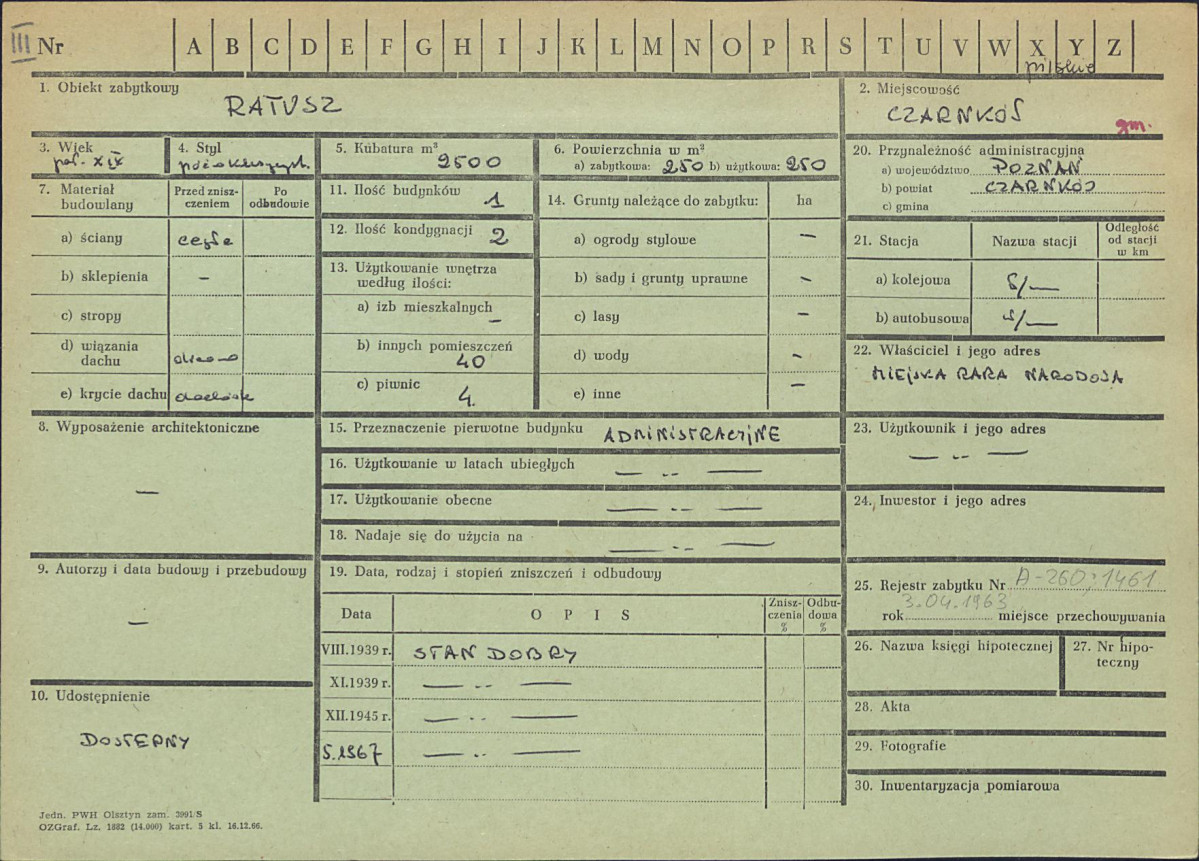 III Nr A B C D E F G H I J K L M N O P R S T U V W X Y Z
pilskie
1. Obiekt zabytkowy
RATUSZ
2. Miejscowość
CZARNKÓW
gm.
3. Wiek
poł. XIX
4. Styl
późnoklasycyst.
5. Kubatura m³
2500
6. Powierzchnia w m²
a) zabytkowa: 250 b) użytkowa: 250
20. Przynależność administracyjna
a) województwo POZNAŃ
b) powiat CZARNKÓW
c) gmina
7. Materiał budowlany
Przed zniszczeniem
Po odbudowie
a) ściany cegła
b) sklepienia —
c) stropy
d) wiązania dachu drewno
e) krycie dachu dachówk
11. Ilość budynków 1
12. Ilość kondygnacji 2
13. Użytkowanie wnętrza według ilości:
a) izb mieszkalnych —
b) innych pomieszczeń 40
c) piwnic 4.
14. Grunty należące do zabytku: ha
a) ogrody stylowe —
b) sady i grunty uprawne —
c) lasy —
d) wody —
e) inne —
21. Stacja
Nazwa stacji
Odległość od stacji w km
a) kolejowa
b) autobusowa
22. Właściciel i jego adres
MIEJSKA RADA NARODOWA
8. Wyposażenie architektoniczne
—
15. Przeznaczenie pierwotne budynku ADMINISTRACYJNE
16. Użytkowanie w latach ubiegłych — „ —
17. Użytkowanie obecne — „ —
18. Nadaje się do użycia na — „ —
23. Użytkownik i jego adres
— „ —
24. Inwestor i jego adres
9. Autorzy i data budowy i przebudowy
—
19. Data, rodzaj i stopień zniszczeń i odbudowy
Data
O P I S
Zniszczenia %
Odbudowa %
VIII.1939 r. STAN DOBRY
XI.1939 r. — „ —
XII.1945 r. — „ —
5.1967 — „ —
25. Rejestr zabytku Nr A-260; 1461
3.04.1963
rok miejsce przechowywania
26. Nazwa księgi hipotecznej
27. Nr hipoteczny
28. Akta
29. Fotografie
30. Inwentaryzacja pomiarowa
10. Udostępnienie
DOSTĘPNY
Jedn. PWH Olsztyn zam. 3991/S
OZGraf. Lz. 1882 (14.000) kart. 5 kl. 16.12.66.